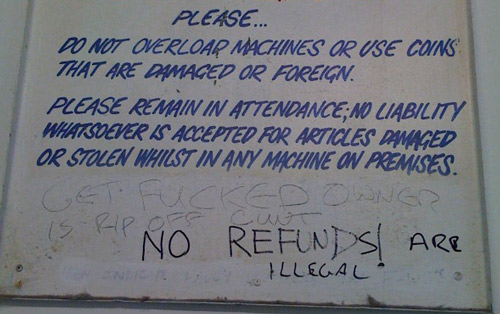 PLEASE...
DO NOT OVERLOAD MACHINES OR USE COINS
THAT ARE DAMAGED OR FOREIGN.
PLEASE REMAIN IN ATTENDANCE; NO LIABILITY
WHATSOEVER IS ACCEPTED FOR ARTICLES DAMAGED
OR STOLEN WHILST IN ANY MACHINE ON PREMISES.
GET FUCKED OWNER
IS RIP OFF CUNT
NO REFUNDS! ARE
ILLEGAL